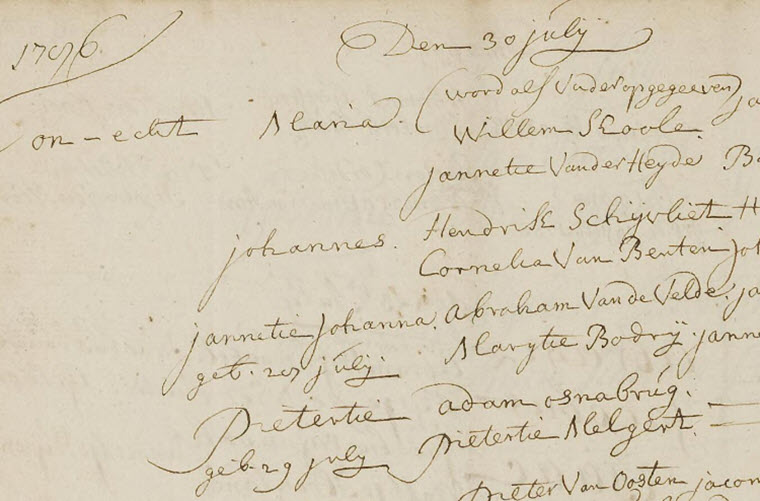 1776
Den 30 july
on-echt Maria. (word als Vader opgegeeven) ja
Willem Koole.
jannetie Vander Heyde B
johannes. Hendrik Schijvliet H
Cornelia Van Benten joh
jannetie johanna. Abraham Van de Velde. ja
geb. 27 july. Marytie Bodrij. janne
Pietertie adam osnabrug.
geb. 29 july Pietertie Melgert.
Pieter Van Oosten jacom